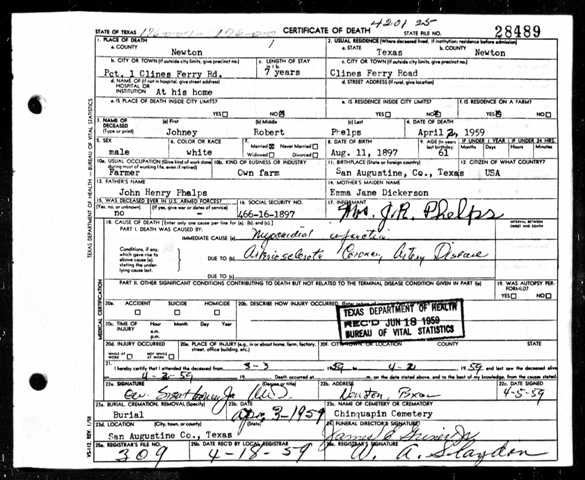 420125
STATE OF TEXAS CERTIFICATE OF DEATH STATE FILE NO. 28489
1. PLACE OF DEATH
a. COUNTY
Newton
2. USUAL RESIDENCE (Where deceased lived. If institution: residence before admission)
a. STATE Texas b. COUNTY Newton
b. CITY OR TOWN (If outside city limits, give precinct no.)
Pct. 1 Clines Ferry Rd.
c. LENGTH OF STAY
7 years
c. CITY OR TOWN (If outside city limits, give precinct no.)
Clines Ferry Road
d. NAME OF (If not in hospital, give street address)
HOSPITAL OR INSTITUTION At his home
d. STREET ADDRESS (If rural, give location)
e. IS PLACE OF DEATH INSIDE CITY LIMITS?
YES NO
e. IS RESIDENCE INSIDE CITY LIMITS?
YES NO
f. IS RESIDENCE ON A FARM?
YES NO
3. NAME OF DECEASED (Type or print)
(a) First Johney
(b) Middle Robert
(c) Last Phelps
4. DATE OF DEATH
April 2, 1959
5. SEX
male
6. COLOR OR RACE
white
7. Married Never Married
Widowed Divorced
8. DATE OF BIRTH
Aug. 11, 1897
9. AGE (In years last birthday)
61
IF UNDER 1 YEAR IF UNDER 24 HRS.
Months Days Hours Minutes
10a. USUAL OCCUPATION (Give kind of work done during most of working life, even if retired)
Farmer
10b. KIND OF BUSINESS OR INDUSTRY
Own farm
11. BIRTHPLACE (State or foreign country)
San Augustine, Co., Texas
12. CITIZEN OF WHAT COUNTRY?
USA
13. FATHER'S NAME
John Henry Phelps
14. MOTHER'S MAIDEN NAME
Emma Jane Dickerson
15. WAS DECEASED EVER IN U.S. ARMED FORCES?
(Yes, no, or unknown) (If yes, give war or dates of service)
no
16. SOCIAL SECURITY NO.
466-16-1897
17. INFORMANT
Mrs. J.R. Phelps
18. CAUSE OF DEATH (Enter only one cause per line for (a), (b), and (c).)
INTERVAL BETWEEN ONSET AND DEATH
PART I. DEATH WAS CAUSED BY:
IMMEDIATE CAUSE (a) Myocardial infarction
Conditions, if any, which gave rise to above cause (a), stating the underlying cause last.
DUE TO (b) Arteriosclerotic Coronary Artery Disease
DUE TO (c)
PART II. OTHER SIGNIFICANT CONDITIONS CONTRIBUTING TO DEATH BUT NOT RELATED TO THE TERMINAL DISEASE CONDITION GIVEN IN PART I(a)
19. WAS AUTOPSY PERFORMED?
YES NO
20a. ACCIDENT SUICIDE HOMICIDE
20b. DESCRIBE HOW INJURY OCCURRED.
TEXAS DEPARTMENT OF HEALTH
REC'D JUN 18 1959
BUREAU OF VITAL STATISTICS
20c. TIME OF INJURY
Hour Month Day Year
20d. INJURY OCCURRED
WHILE AT WORK NOT WHILE AT WORK
20e. PLACE OF INJURY (e.g., in or about home, farm, factory, street, office building, etc.)
20f. CITY, TOWN, OR LOCATION COUNTY STATE
21. I hereby certify that I attended the deceased from 3-3 1959 to 4-2 1959 and last saw the deceased alive
4-2-59 Death occurred at m. on the date stated above, and to the best of my knowledge, from the causes stated.
22a. SIGNATURE (Degree or title)
M.D.
22b. ADDRESS
Newton, Texas
22c. DATE SIGNED
4-5-59
23a. BURIAL, CREMATION, REMOVAL (Specify)
Burial
23b. DATE
Apr 3-1959
23c. NAME OF CEMETERY OR CREMATORY
Chinquapin Cemetery
23d. LOCATION (City, town, or county) (State)
San Augustine Co., Texas
24. FUNERAL DIRECTOR'S SIGNATURE
25a. REGISTRAR'S FILE NO.
309
25b. DATE REC'D BY LOCAL REGISTRAR
4-18-59
25c. REGISTRAR'S SIGNATURE
W. A. Slaydon
TEXAS DEPARTMENT OF HEALTH — BUREAU OF VITAL STATISTICS
MEDICAL CERTIFICATION
VS-112 REV. 1/58